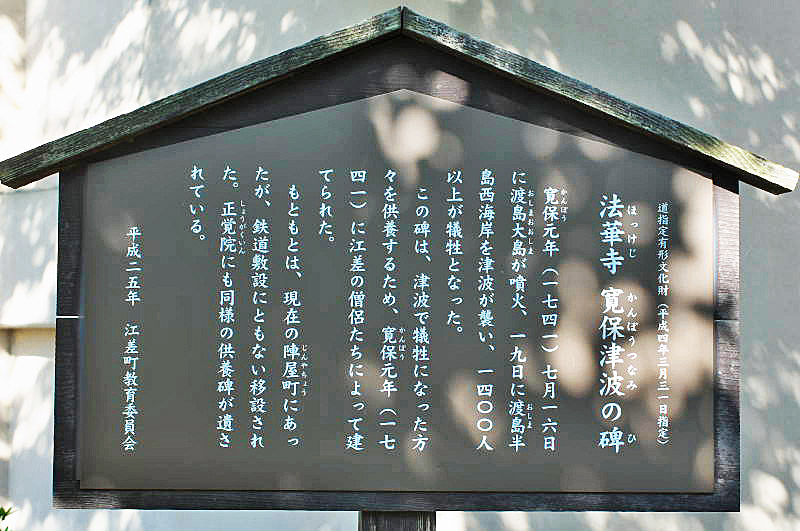 道指定有形文化財(平成四年三月三一日指定)
法華寺 寛保津波の碑
ほっけじ かんぽうつなみ ひ
寛保元年(一七四一)七月一六日
かんぽう
に渡島大島が噴火、一九日に渡島半
おしまおおしま おしま
島西海岸を津波が襲い、一四〇〇人
以上が犠牲となった。
この碑は、津波で犠牲になった方
々を供養するため、寛保元年(一七
かんぽう
四一)に江差の僧侶たちによって建
てられた。
もともとは、現在の陣屋町にあっ
じんやちょう
たが、鉄道敷設にともない移設され
た。正覚院にも同様の供養碑が遺さ
しょうがくいん
れている。
平成二五年 江差町教育委員会